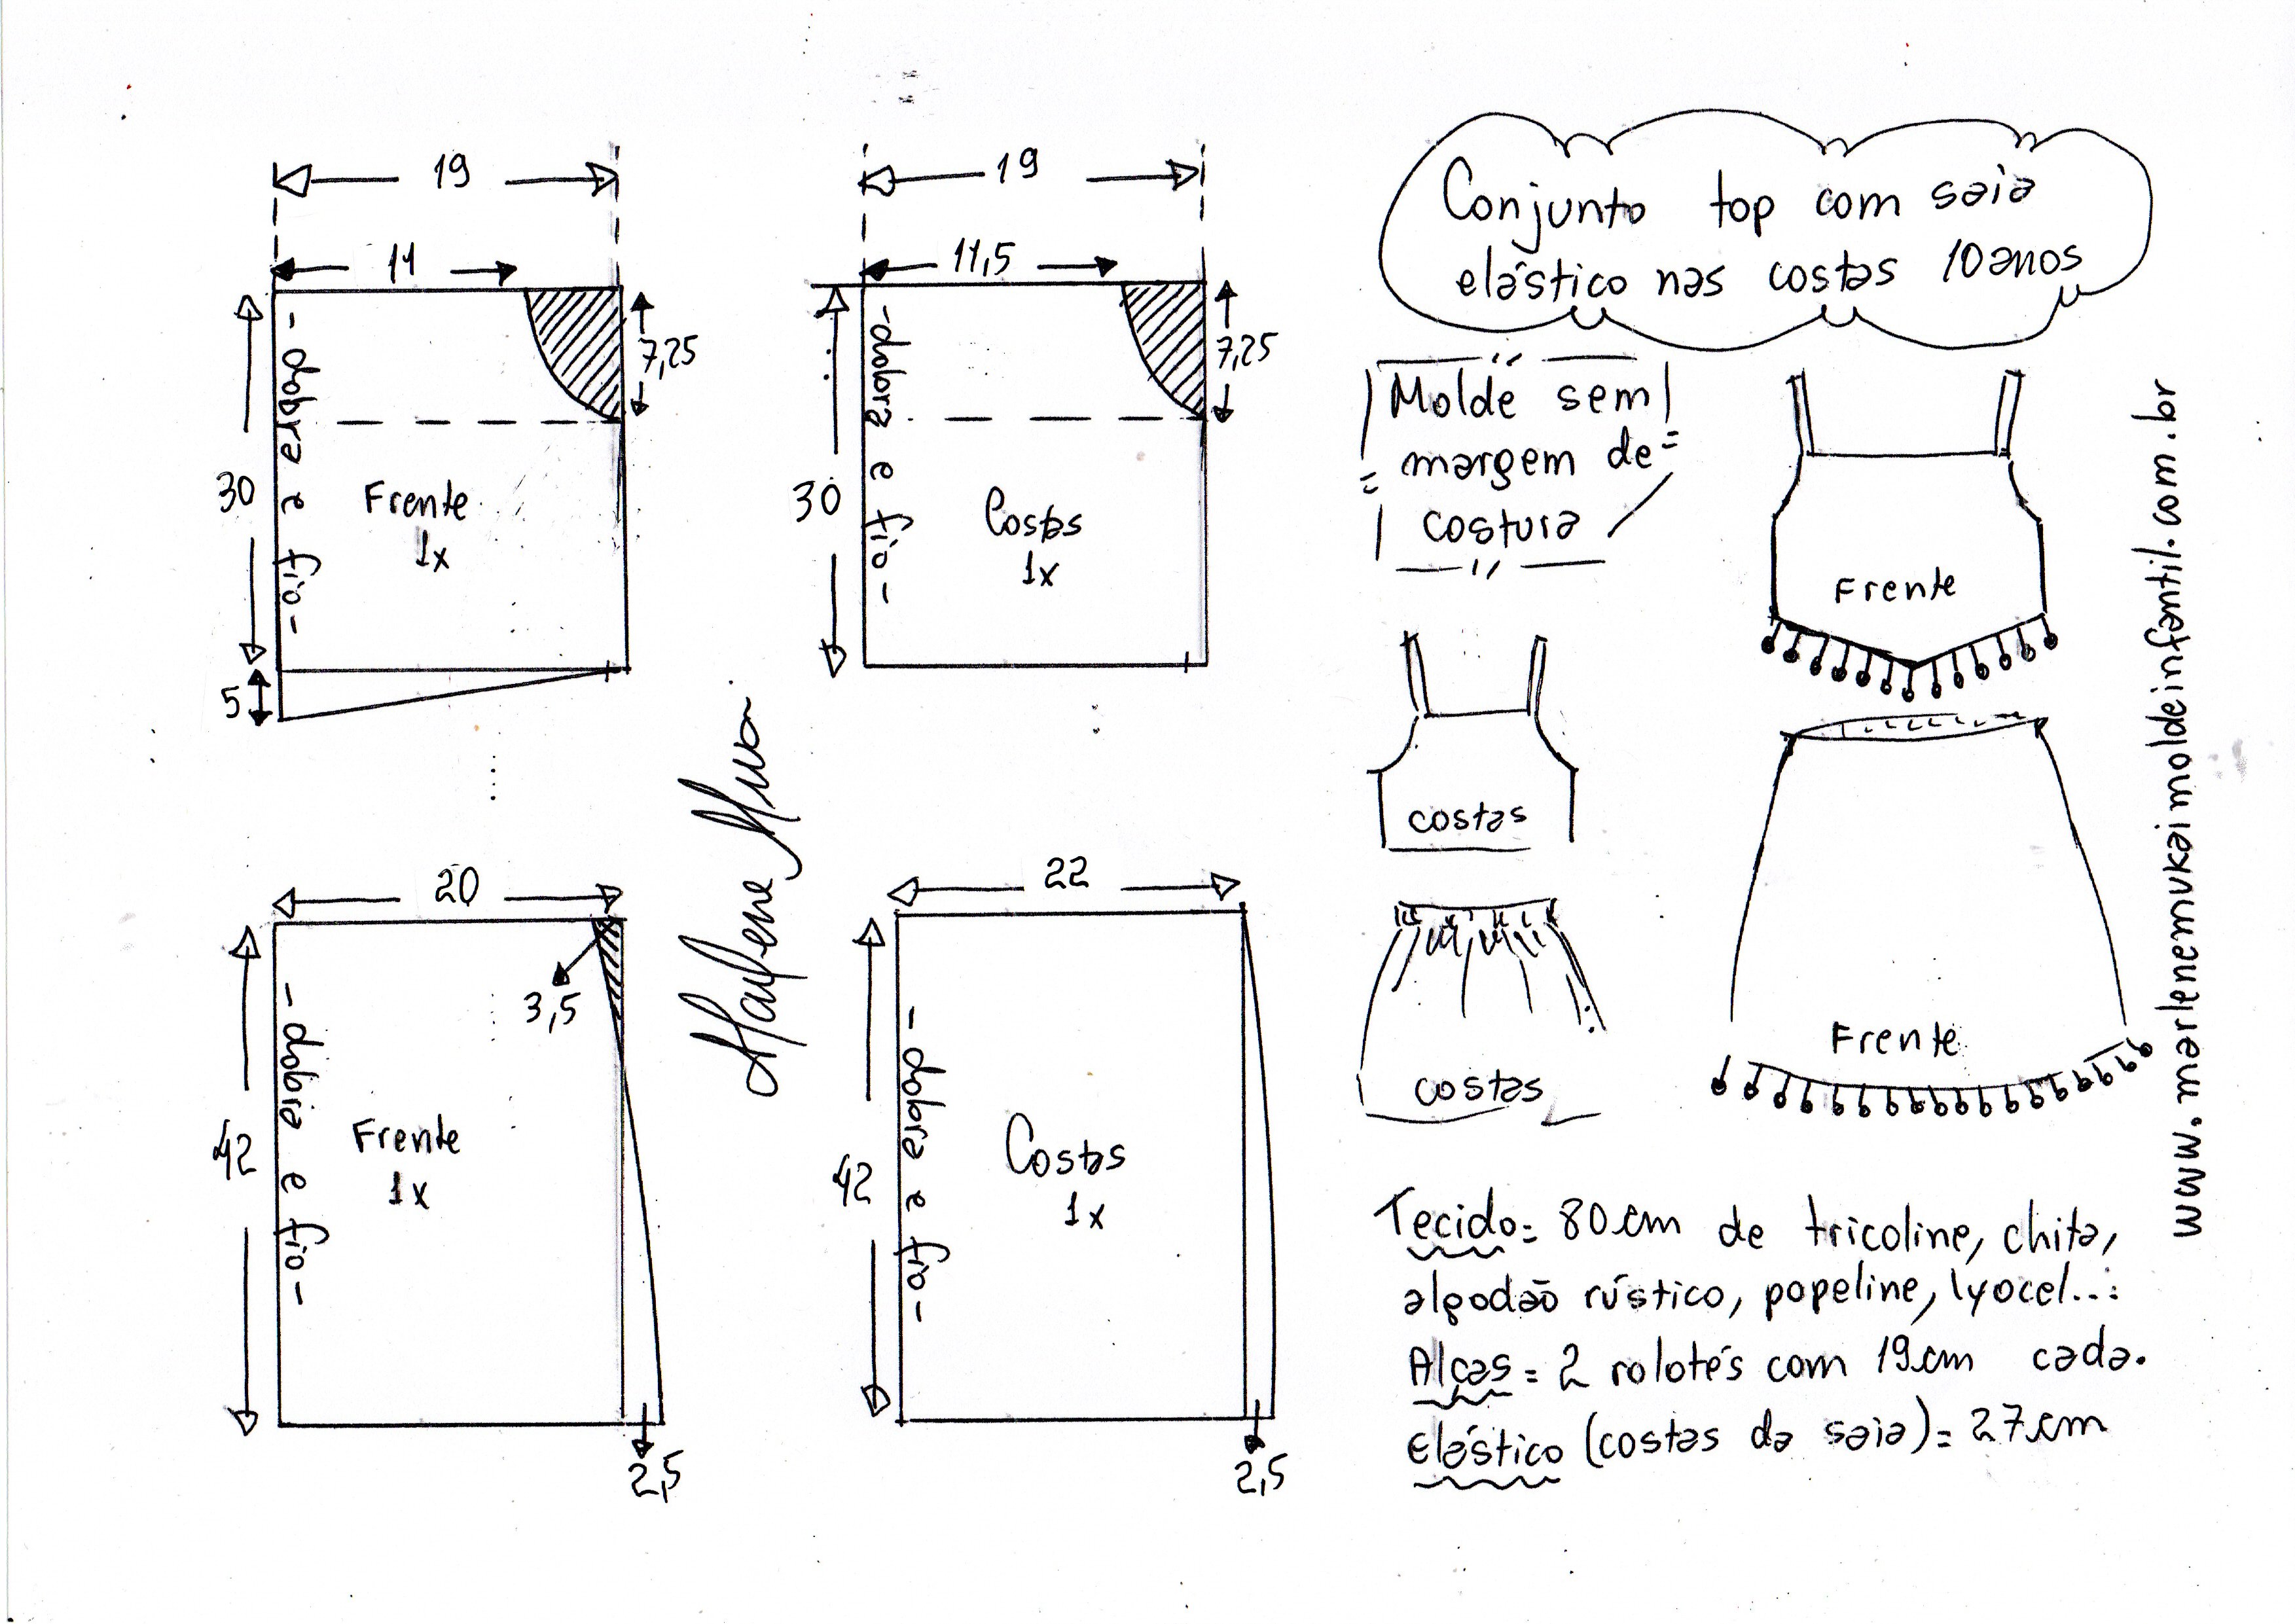 19
11
7,25
30
5
- dobra e fio -
Frente
1x
19
11,5
7,25
30
- dobra e fio -
Costas
1x
Conjunto top com saia
elástico nas costas 10 anos
Molde sem
margem de
costura
Frente
costas
Frente
costas
www.marlenemukaimoldeinfantil.com.br
20
3,5
42
- dobra e fio -
Frente
1x
2,5
Marlene Mukai
22
42
- dobra e fio -
Costas
1x
2,5
Tecido = 80 cm de tricoline, chita,
algodão rústico, popeline, lyocel...
Alças = 2 rolotés com 19 cm cada.
Elástico (costas da saia) = 27 cm